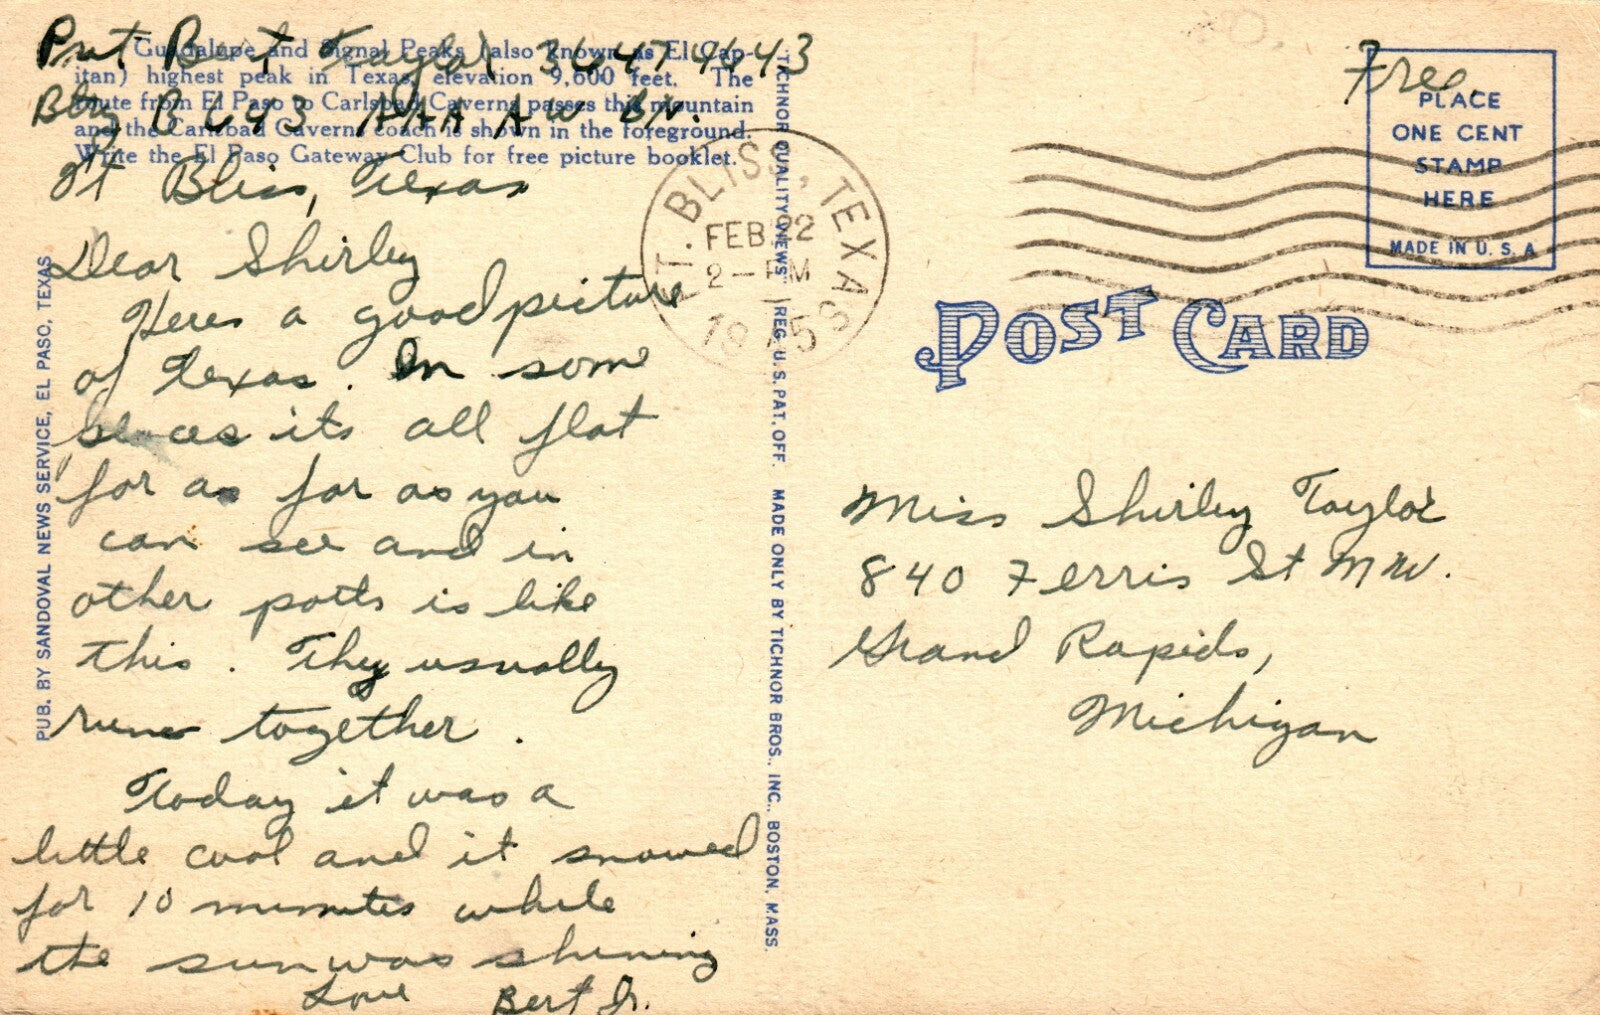 Pvt Bert Taylor 36474643
Btry B 643 AAA AW BN.
Ft Bliss, Texas
Guadalupe and Signal Peaks (also known as El Cap-
itan) highest peak in Texas, elevation 9,600 feet. The
route from El Paso to Carlsbad Caverns passes this mountain
and the Carlsbad Caverns coach is shown in the foreground.
Write the El Paso Gateway Club for free picture booklet.
Dear Shirley
Heres a good picture
of Texas. In some
places its all flat
for as far as you
can see and in
other parts is like
this. They usually
runs together.
Today it was a
little cool and it snowed
for 10 minutes while
the sun was shining
Love Bert Jr.
PUB. BY SANDOVAL NEWS SERVICE, EL PASO, TEXAS
TICHNOR QUALITY VIEWS REG. U.S. PAT. OFF. MADE ONLY BY TICHNOR BROS., INC., BOSTON, MASS.
FT. BLISS, TEXAS
FEB 22
2-PM
Free
PLACE
ONE CENT
STAMP
HERE
MADE IN U. S. A
POST CARD
Miss Shirley Taylor
840 Ferris St NW.
Grand Rapids,
Michigan